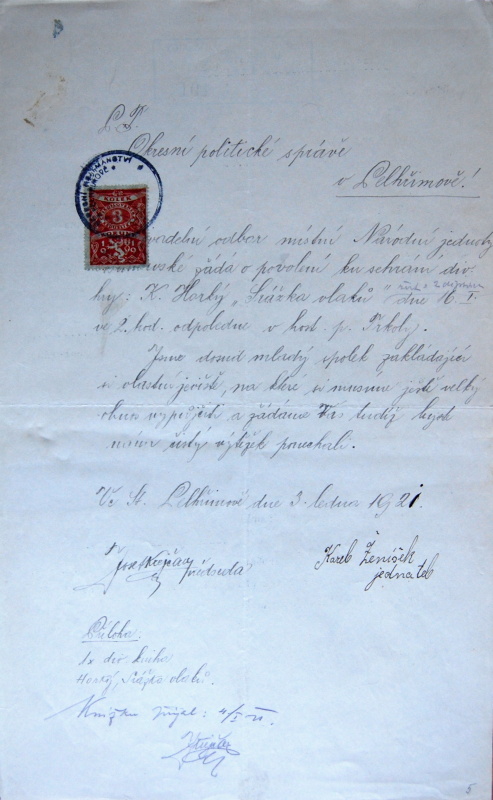 Okresní politické správě
v Pelhřimově!
KOLEK
3
odbor místní Národní jednoty
žádá o povolení ku sehrání div.
hry: K. Horký „Srážka vlaků“ dne 16. I.
ve 2. hod. odpoledne v host. p.
Jsme dosud mladý spolek zakládající
si vlastní jeviště, na které si musíme ještě velký
obnos vypůjčiti a žádáme Vás tudíž bych
čistý výtěžek ponechali.
Ve St. Pelhřimově dne 3. ledna 1921.
předseda
Karel Ženíšek
jednatel
Příloha:
1x div. kniha
Horký, Srážka vlaků.
Knížku přijal: 4/I 21
5